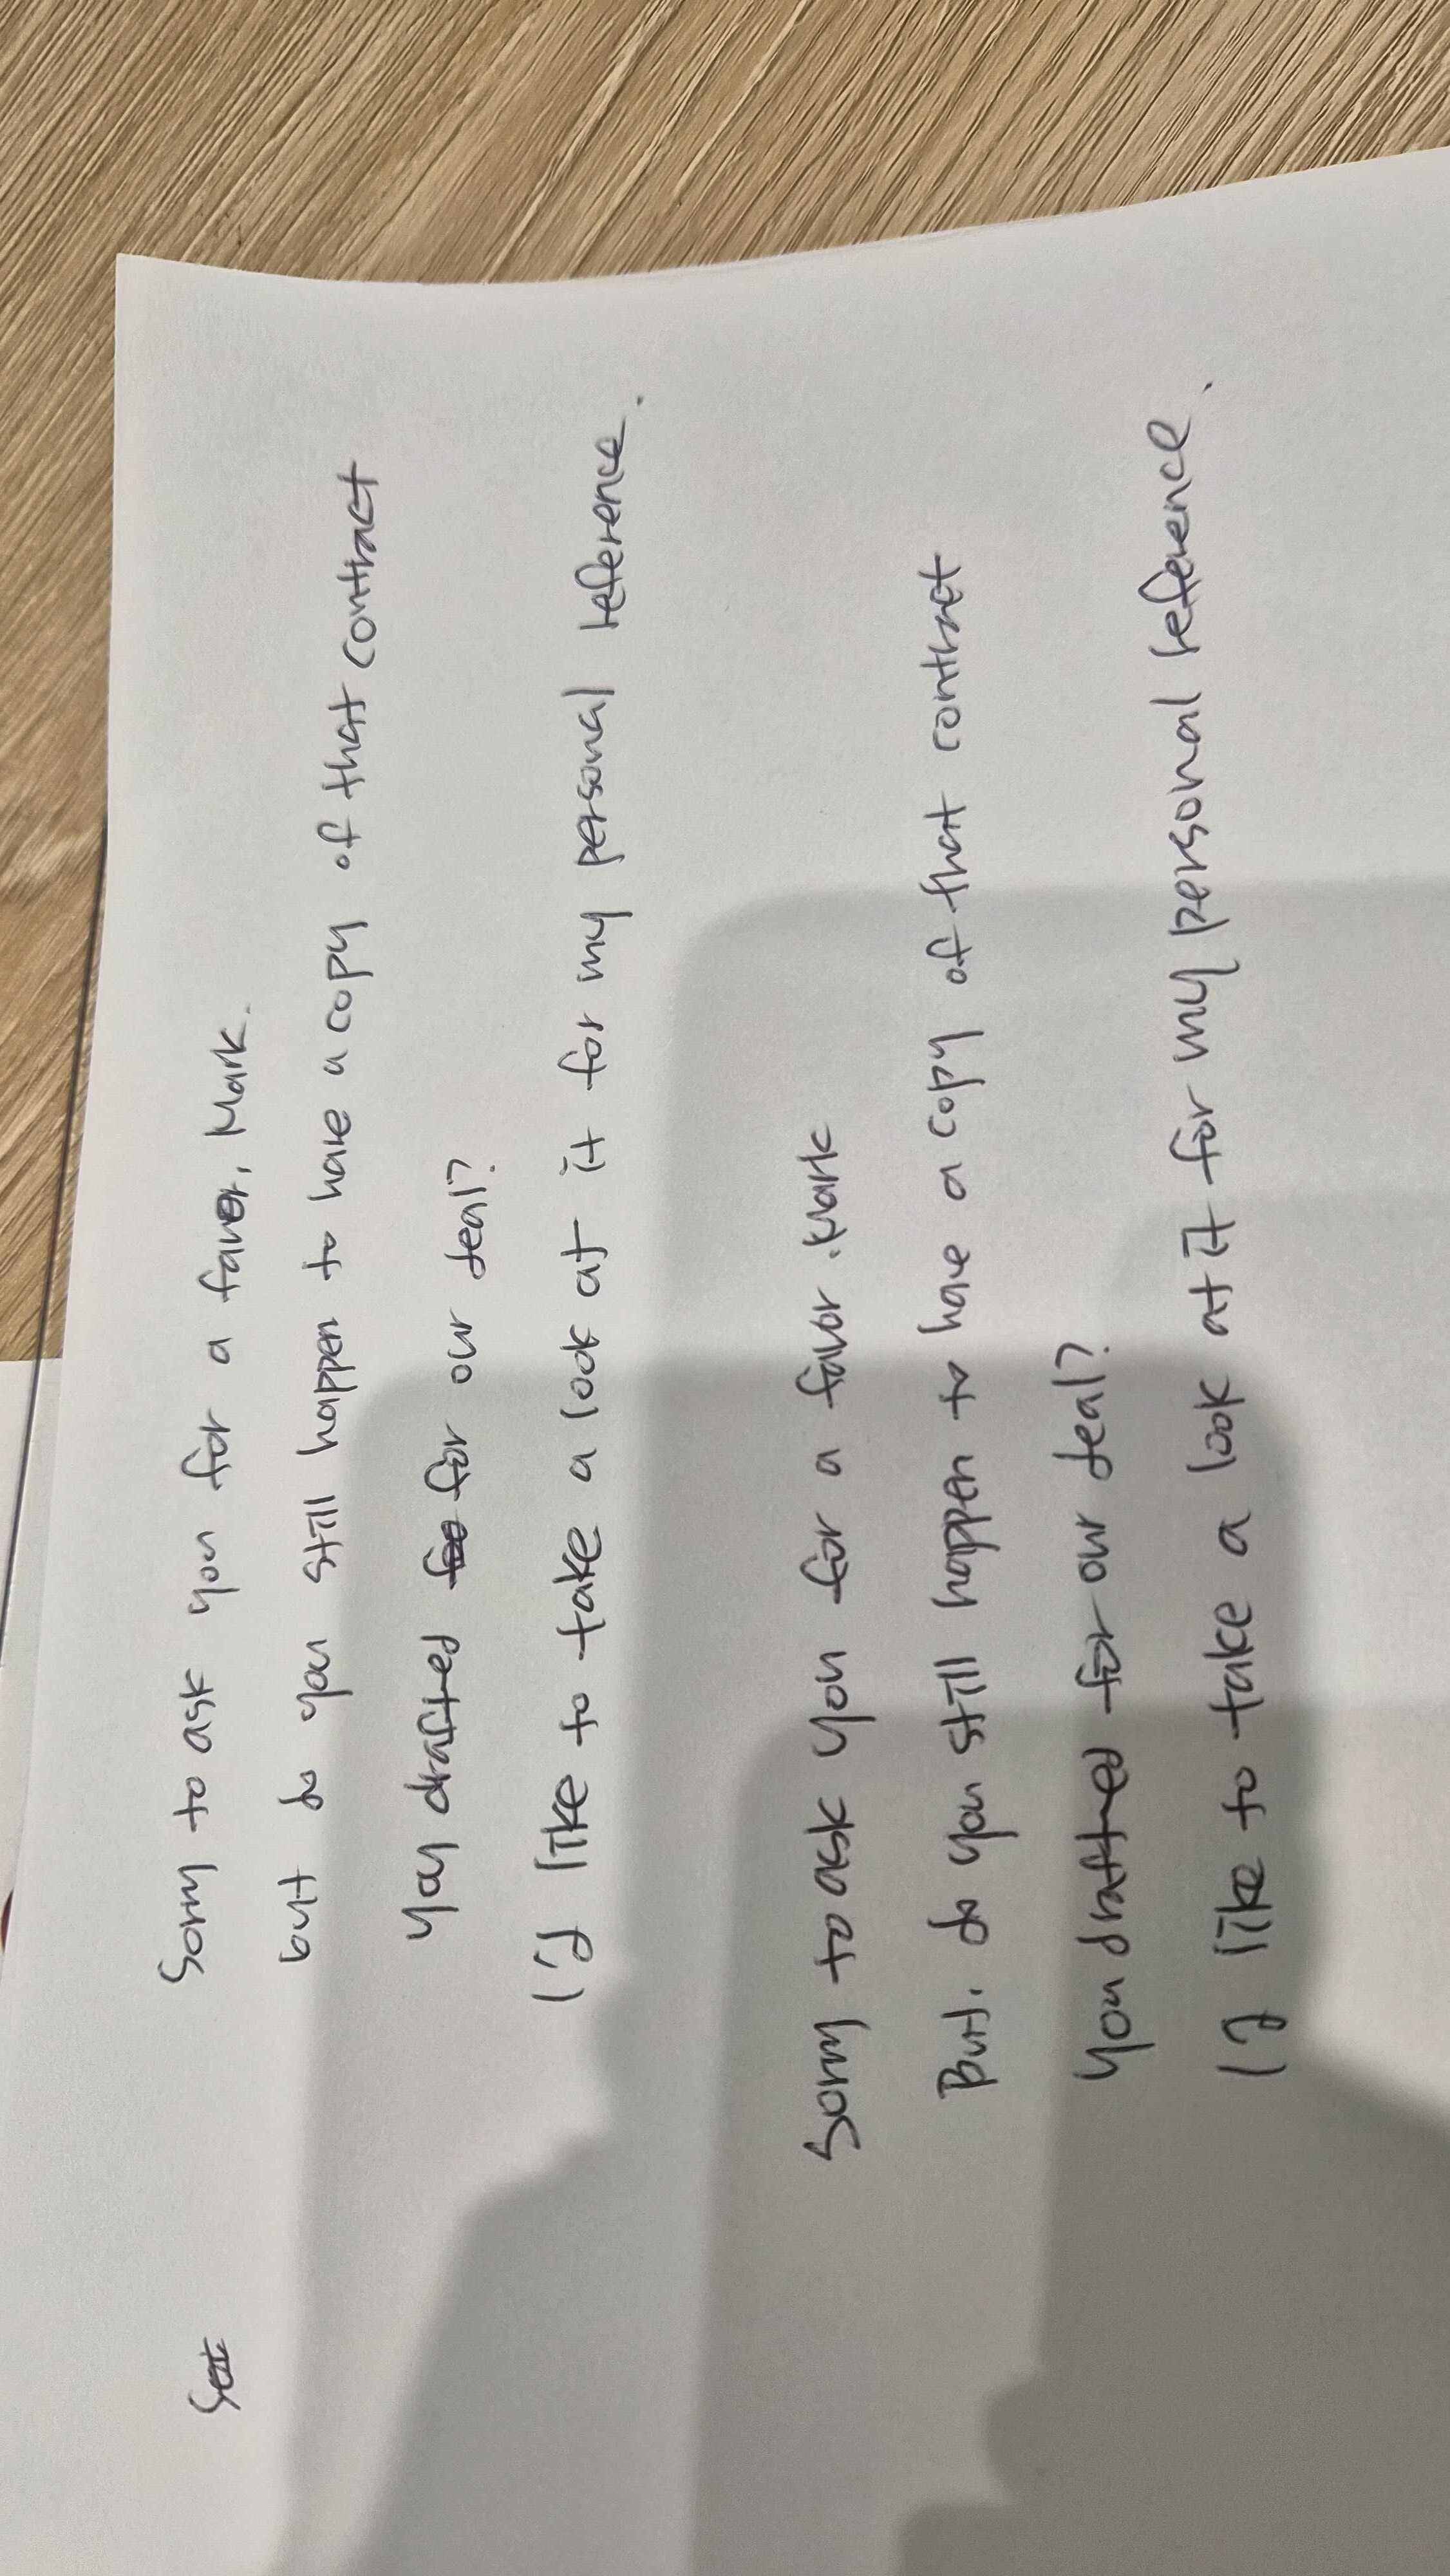 Sorry to ask you for a favor, Mark.
but do you still happen to have a copy of that contract
you drafted for our deal?
I'd like to take a look at it for my personal reference.
Sorry to ask you for a favor. Mark
But, do you still happen to have a copy of that contract
you drafted for our deal?
I'd like to take a look at it for my personal reference.